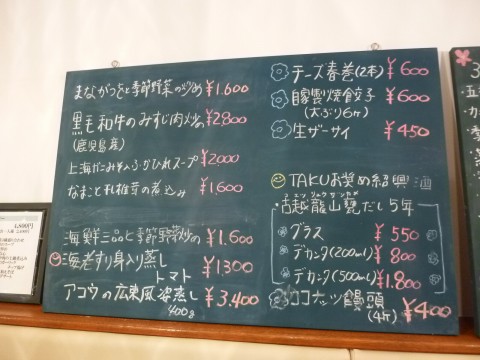 まながつおと季節野菜の炒め ¥1.600
黒毛和牛のみすじ肉炒め ¥2800
(鹿児島産)
上海がにみそ入ふかひれスープ ¥2000
なまこと札椎茸の煮込み ¥1,600
海鮮三品と季節野菜炒め ¥1.600
海老すり身入り蒸し ¥1300
トマト
アコウの広東風姿蒸し ¥3.400
400g
チーズ春巻(2本) ¥600
自家製焼餃子 ¥600
(大ぶり6ヶ)
生ザーサイ ¥450
TAKUお奨め紹興酒
・古越龍山甕だし5年
グラス ¥550
デカンタ(200ml) ¥800
デカンタ(500ml) ¥1.800
ココナッツ饅頭 ¥400
(4ヶ)